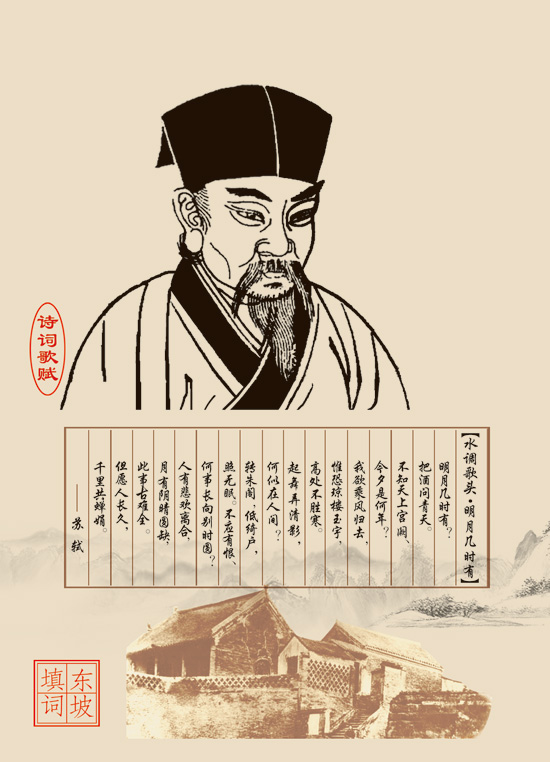 诗词歌赋
【水调歌头·明月几时有】
明月几时有?
把酒问青天。
不知天上宫阙、
今夕是何年?
我欲乘风归去,
惟恐琼楼玉宇,
高处不胜寒。
起舞弄清影,
何似在人间?
转朱阁,低绮户,
照无眠。不应有恨、
何事长向别时圆?
人有悲欢离合,
月有阴晴圆缺,
此事古难全。
但愿人长久,
千里共蝉娟。
——苏 轼
东坡
填词